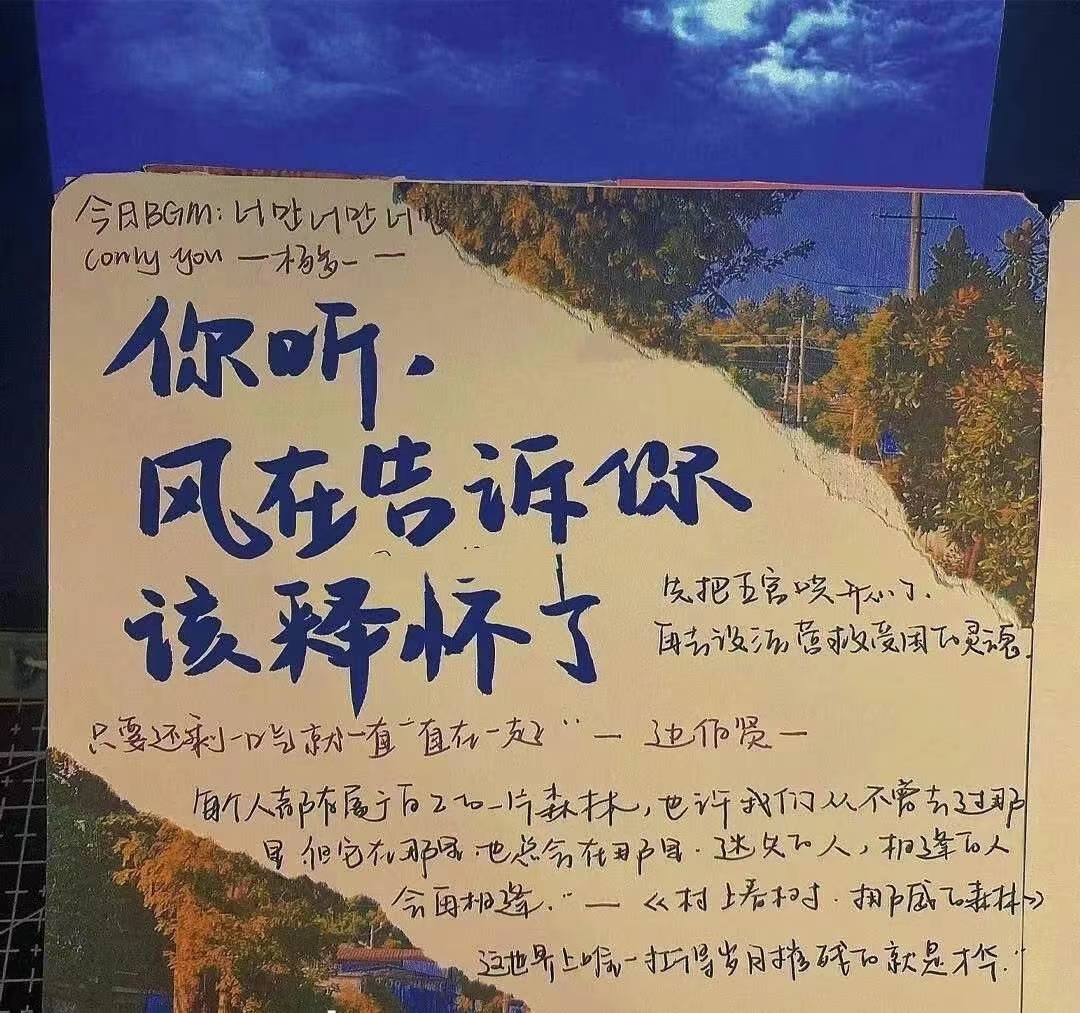 今日BGM:너만 너만 너만
(only you — 杨多一 —
你听.
风在告诉你
该释怀了
先把五官哄开心了.
再去设法营救受困的灵魂.
只要还剩一口气就一直一直在一起" — 边伯贤 —
每个人都有属于自己的一片森林,也许我们从不曾去过那
里 但它在那里.也总会在那里.迷失的人,相逢的人
会再相逢." — 《村上春树.挪威的森林》
这世界上唯一扛得岁月摧残的就是才华."